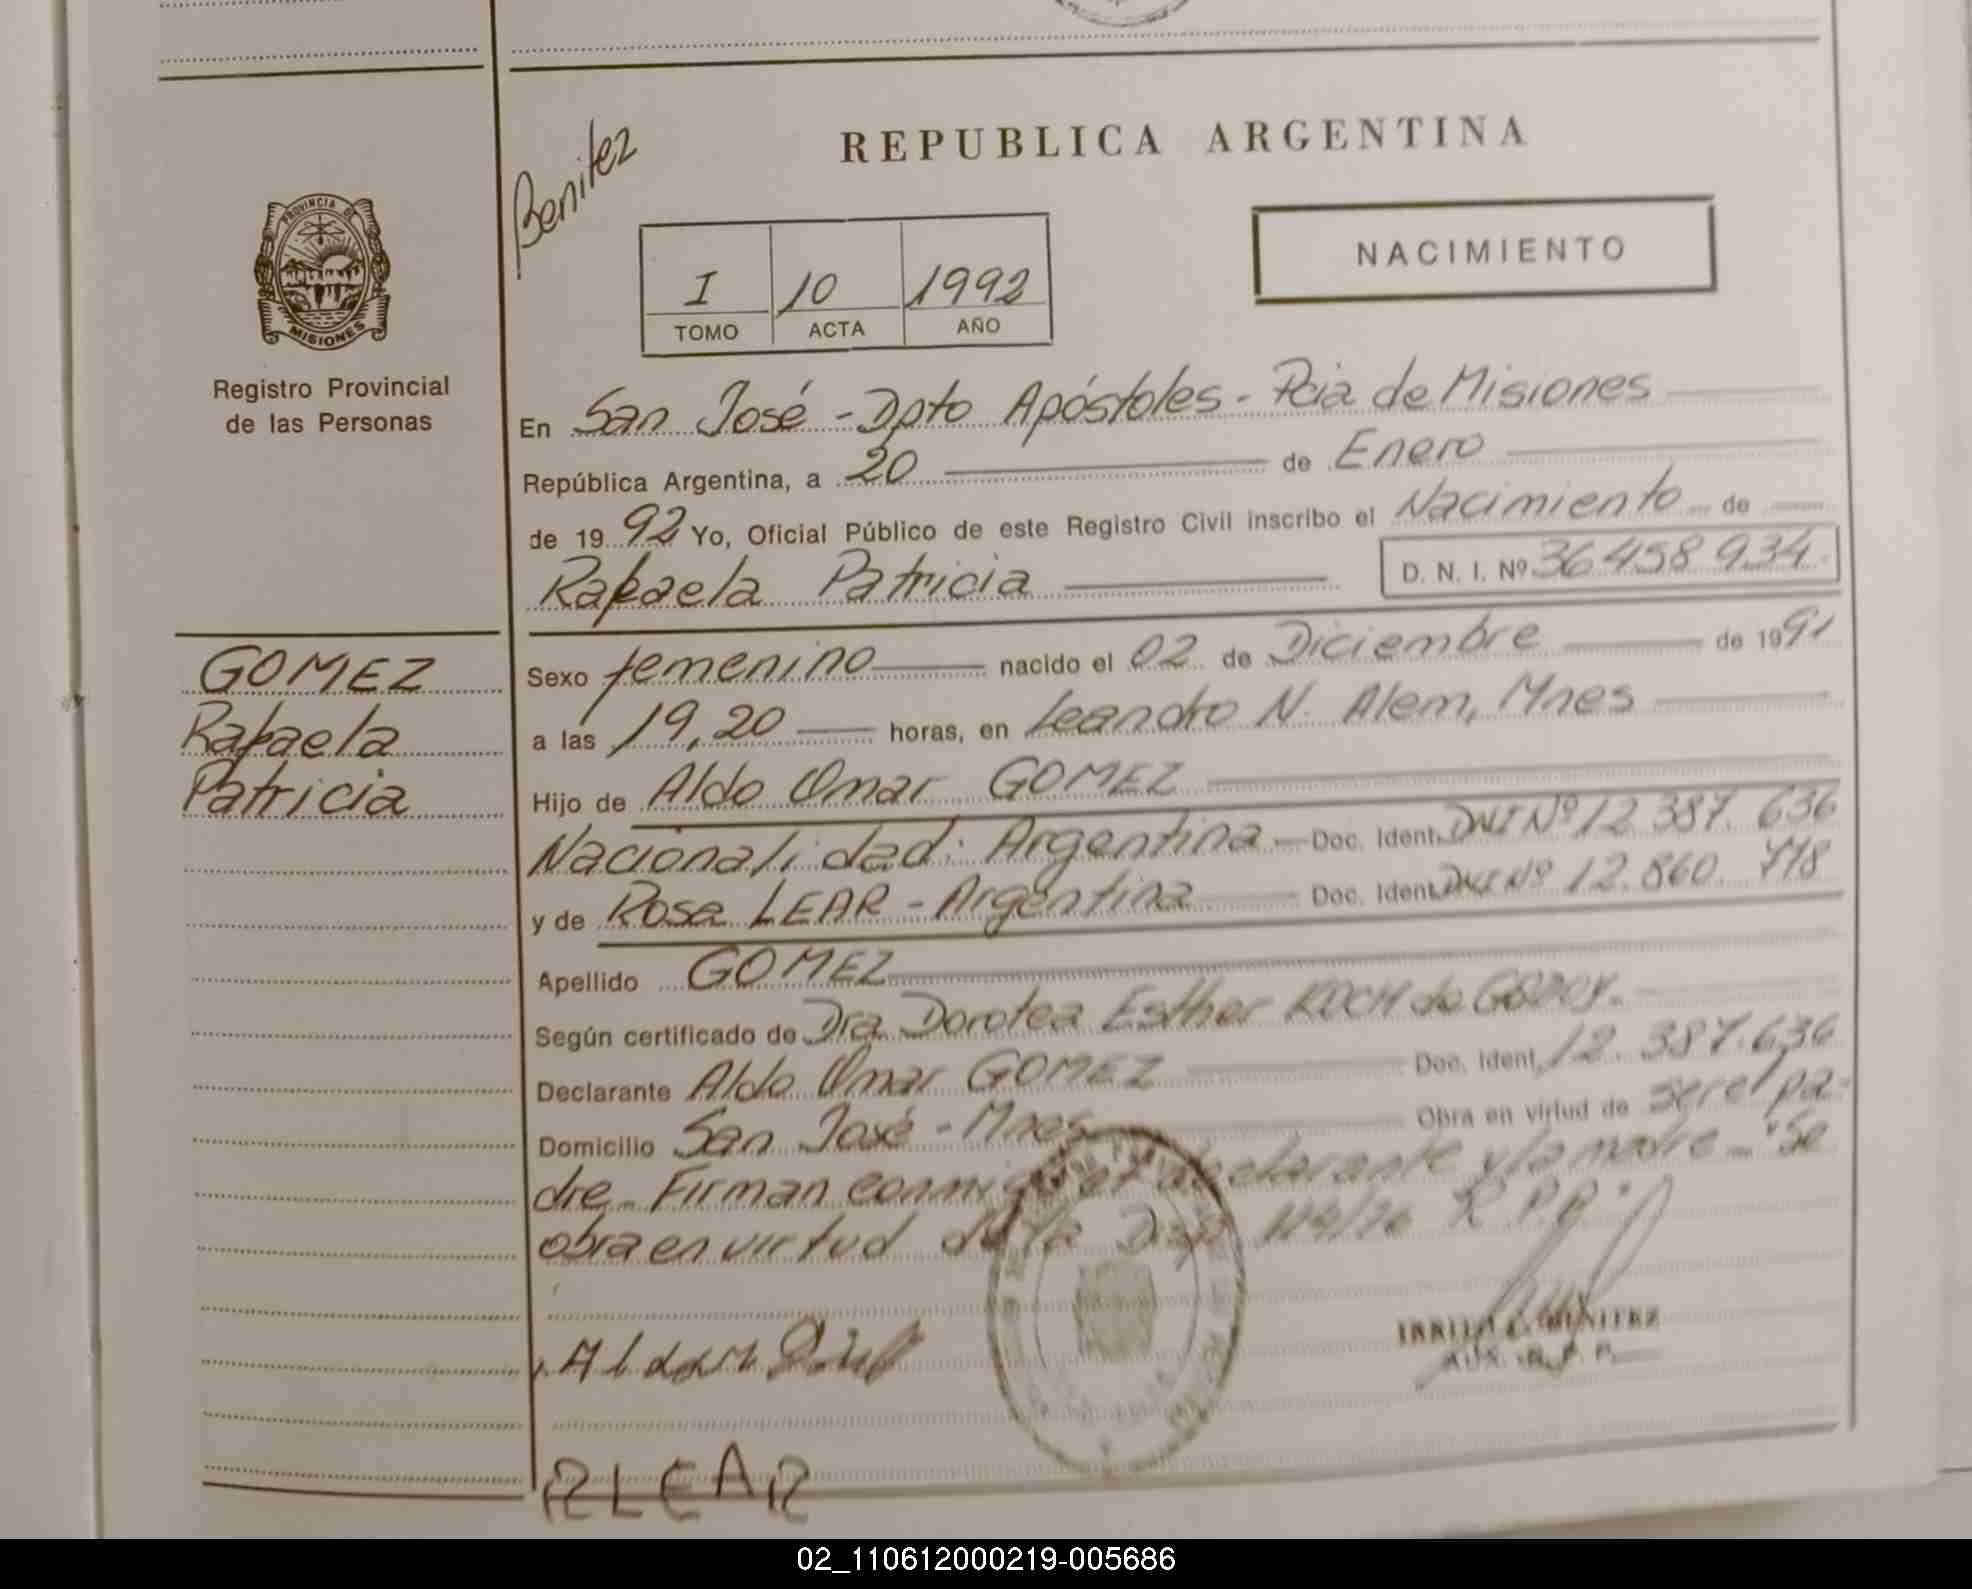 REPUBLICA ARGENTINA
Benitez
PROVINCIA DE
MISIONES
Registro Provincial
de las Personas
I 10 1992
TOMO ACTA AÑO
NACIMIENTO
En San José - Dpto Apóstoles - Pcia de Misiones
República Argentina, a 20 de Enero
de 1992 Yo, Oficial Público de este Registro Civil inscribo el Nacimiento de
Rafaela Patricia D. N. I. Nº 36 458 934
GOMEZ
Rafaela
Patricia
Sexo femenino nacido el 02 de Diciembre de 1991
a las 19,20 horas, en Leandro N. Alem, Mnes
Hijo de Aldo Omar GOMEZ
Nacionalidad: Argentina Doc. Ident. DNI Nº 12 387. 636
y de Rosa LEAR - Argentina Doc. Ident. DNI Nº 12.860. 718
Apellido GOMEZ
Según certificado de Dra Dorotea Esther KOCH de GODOY.
Declarante Aldo Omar GOMEZ Doc. Ident. 12. 387.636
Domicilio San José - Mnes Obra en virtud de ser el pa-
dre. Firman conmigo el declarante y la madre - "Se
obra en virtud de la Disp R.P.P."
BENITEZ
AUX. R. P. P.
RLEAR
02_110612000219-005686